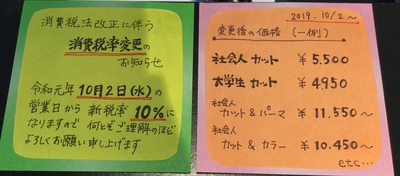 消費税法改正に伴う
消費税率変更の
お知らせ
令和元年10月2日(水)の
営業日から 新税率10%に
なりますので 何とぞご理解のほど
よろしくお願い申し上げます
2019.10/2〜
変更後の価格(一例)
社会人カット ¥5.500
大学生カット ¥4950
社会人
カット&パーマ ¥11.550〜
社会人
カット&カラー ¥10.450〜
etc…